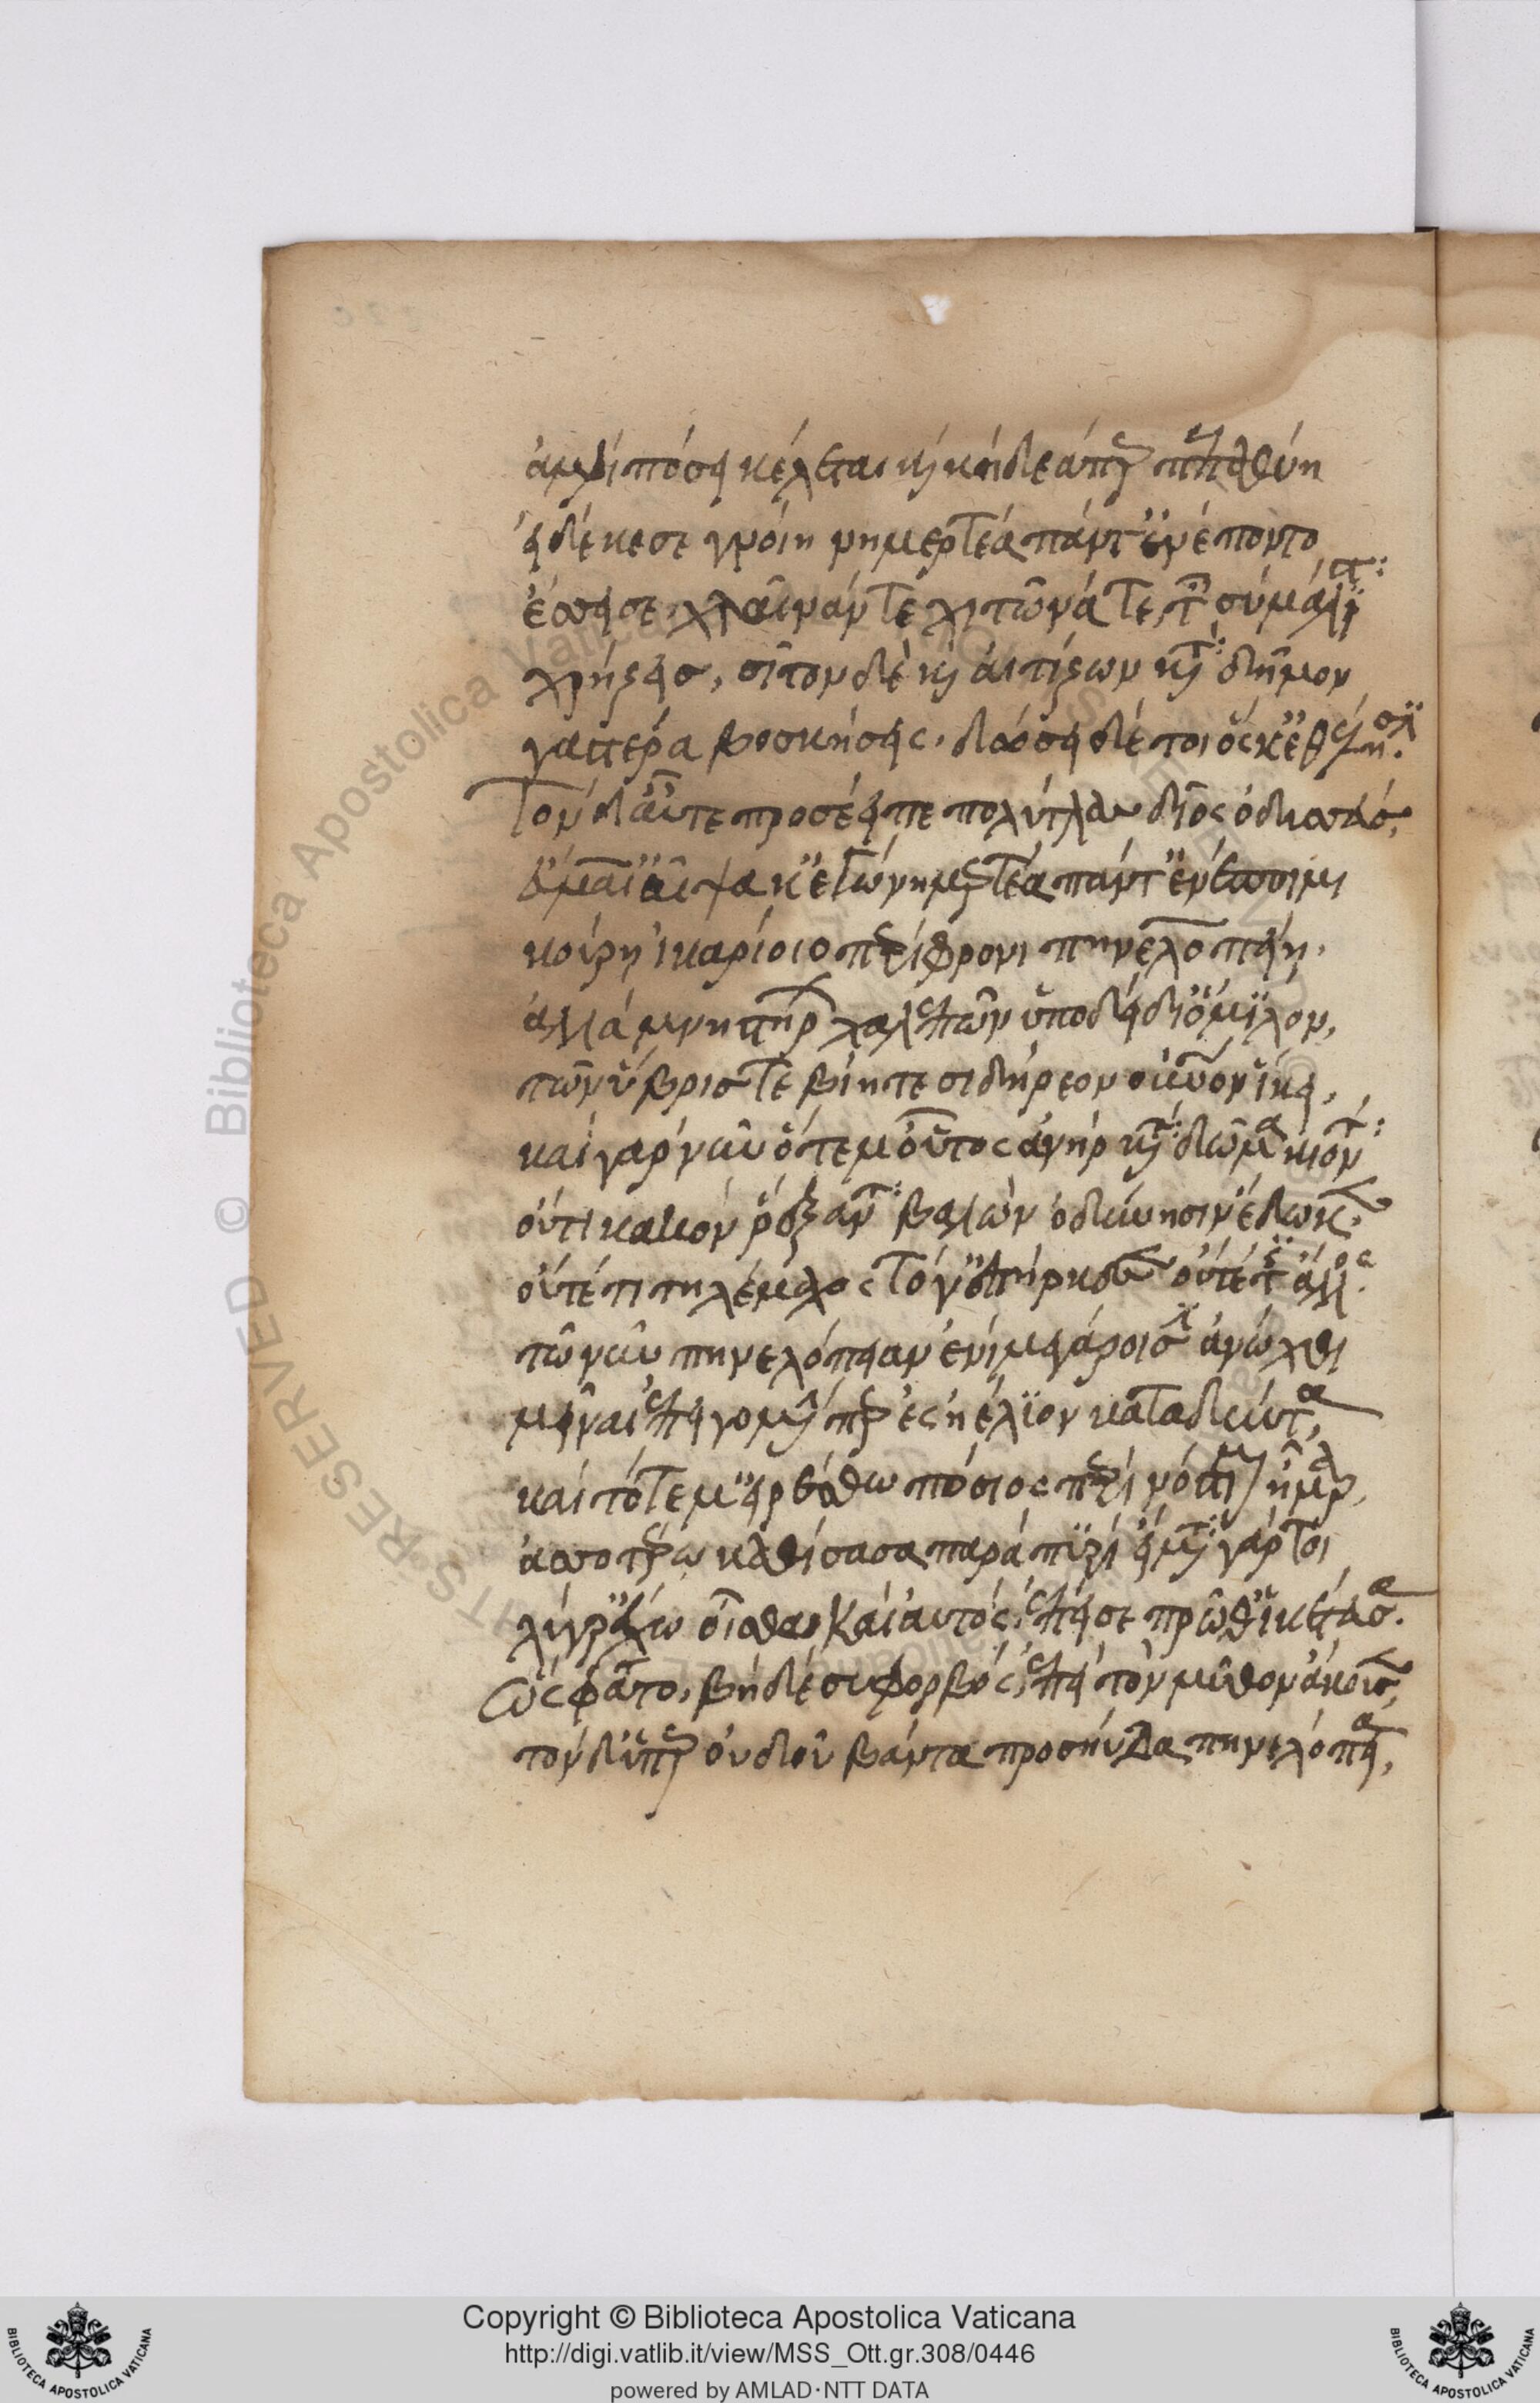 ἀμφὶ πόσει κέλεται καὶ κήδεά περ πεπαθυίη
εἰ δέ κε σε γνοίη νημερτέα πάντ' ἐνέποντα
ἕσσει σε χλαῖναν τε χιτῶνά τε τῶν σὺ μάλιστα
χρηίζεις, σῖτον δὲ καὶ αἰτίζων κατὰ δῆμον
γαστέρα βοσκήσεις. δώσει δέ τοι ὅς κ' ἐθέλησι.
Τὸν δ' αὖτε προσέειπε πολύτλας δῖος ὀδυσσεύς,
εὔμαι' αἶψα κ' ἐγὼ νημερτέα πάντ' ἐνέποιμι
κούρη ἰκαρίοιο περίφρονι πηνελοπείη.
ἀλλὰ μνηστήρων χαλεπῶν ὑποδείδι' ὅμιλον,
τῶν ὕβρις τε βίη τε σιδήρεον οὐρανὸν ἵκει,
καὶ γὰρ νῦν ὅτε μ' οὗτος ἀνὴρ κατὰ δῶμα κιόντα
οὔτι κακὸν ῥέξαντα βαλὼν ὀδύνησιν ἔδωκεν.
οὔτέ τι τηλέμαχος τόγ' ἐπήρκεσεν οὐτέ τις ἄλλος.
τῶ νῦν πηνελόπειαν ἐνὶ μεγάροισιν ἄνωχθι
μεῖναι ἐπειγομένην περ ἐς ἠέλιον καταδύντα,
καὶ τότε μ' εἰρέσθω πόσιος πέρι νόστιμον ἦμαρ,
ἀσσοτέρω καθίσασα παραὶ πυρὶ εἵματα γάρ τοι
λύγρ' ἔχω οἶσθα καὶ αὐτός, ἐπεί σε πρῶθ' ἱκέτευσα.
Ὣς φάτο, βῆ δὲ συφορβός, ἐπεὶ τὸν μῦθον ἄκουσε,
τὸν δ' ὑπὲρ οὐδοῦ βάντα προσηύδα πηνελόπεια,
Copyright © Biblioteca Apostolica Vaticana
http://digi.vatlib.it/view/MSS_Ott.gr.308/0446
powered by AMLAD·NTT DATA